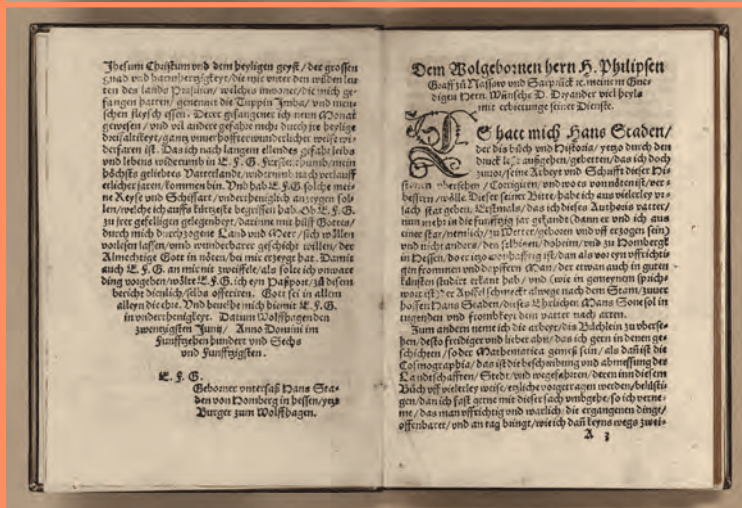 Jhesum Christum vnd dem heyligen geyst/ der grossen
gnad vnd barmhertzigkeyt/ die mir vnter den wilden leu
ten des lands Prasilien/ welches inwoner/ die mich ge-
fangen hatten/ genennet die Tuppin Imba/ vnd men-
schen fleysch essen. Derer gefangener ich neun Monat
gewesen/ vnd vil anderer gefahr mehr durch jre heylige
dreifaltikeyt/ gantz vnuerhoffter wunderlicher weise wi-
derfaren ist. Das ich nach langem ellendes gefahr leibs
vnd lebens widerumb in E. F. G. Fürstenthumb/ mein
höchstes geliebtes Vatterland/ widerumb nach verlauff
etlicher jaren/ kommen bin. Vnd hab E. F. G. solche mei-
ne Reyse vnd Schiffart/ vndertheniglich anzeygen sol
len/ welche ich auffs kürtzeste begriffen hab. Ob E. F. G.
zu jrer gefelligen gelegenheyt/ darinne mit hilff Gottes/
durch mich durchzogene Land vnd Meer/ sich wöllen
vorlesen lassen/ vmb wunderbarer geschicht willen/ der
Almechtige Gott in nöten/ bei mir erzeygt hat. Damit
auch E. F. G. an mir nit zweiffele/ als solte ich vnware
ding vorgeben/ wölte E. F. G. ich eyn Paßport/ zu disem
bericht dienlich/ selbs offeriren. Gott sei in allem
alleyn die ehre. Vnd beuelhe mich hiemit E. F. G.
in vnderthenigkeyt. Datum Wolffhagen den
zwentzigsten Junij/ Anno Domini im
Funfftzehen hundert vnd Sechs
vnd Funfftzigsten.
E. F. G.
Geborner vntersaß Hans Sta-
den von Homberg in hessen/ yetz
Burger zum Wolffhagen.
Dem Wolgebornen hern H. Philipsen
Graff zu Nassaw vnd Sarprück ec. meinem Gne-
digen Hern. Wünscht D. Dryander viel heyls
mit erbietunge seiner Dienste.
ES hatt mich Hans Staden/
der diß büch vnd Historia/ yetzo durch den
druck leßt außgehen/ gebetten/ das ich doch
zuuor/ seine Arbeyt vnd Schrifft dieser Hi-
storien vbersehen/ Corrigirn/ vnd wo es von nöten ist/ ver-
bessern/ wölle. Dieser seiner Bitte/ habe ich aus vielerley vr-
sach stat geben. Erstmals/ das ich dieses Authoris vatter/
nun mehr in die funfftzig jar gekandt (dann er vnd ich aus
einer star/ nemlich/ zu Wetter/ geboren vnd vff erzogen sein)
vnd nicht anders/ den selbigen/ doheim/ vnd zu Hombergk
in Hessen/ do er itzo wonhafftig ist/ dan als vor eyn vffrichti-
gin frommen vnd dapffern Man/ der etwan auch in guten
künsten studirt erkant hab/ vnd (wie in gemeynem sprich-
wort ist) Der Apffel schmeckt alwege nach dem Stam/ zuuer
hoffen Hans Staden/ dieses Ehrlicher Mans Sone sol in
tugenden vnd frombkeyt dem vatter nach arten.
Zum andern neme ich die arbeyt/ dis Büchlein zu vberse-
hen/ desto freidiger vnd lieber ahn/ das ich gern in denen ge-
schichten/ so der Mathematica gemeß sein/ als dañ ist die
Cosmographia/ das ist die beschreibung vnd abmessung der
Landtschafften/ Stedt/ vnd wegefahrten/ deren inn diesem
Büch vff vielerley weise/ etzliche vorgetragen werden/ belüsti-
gen/ dan ich fast gerne mit dieser sach vmbgehe/ so ich verne-
me/ das man vffrichtig vnd warlich/ die ergangenen dinge/
offenbaret/ vnd an tag bringt/ wie ich dañ keyns wegs zwei-
A 3